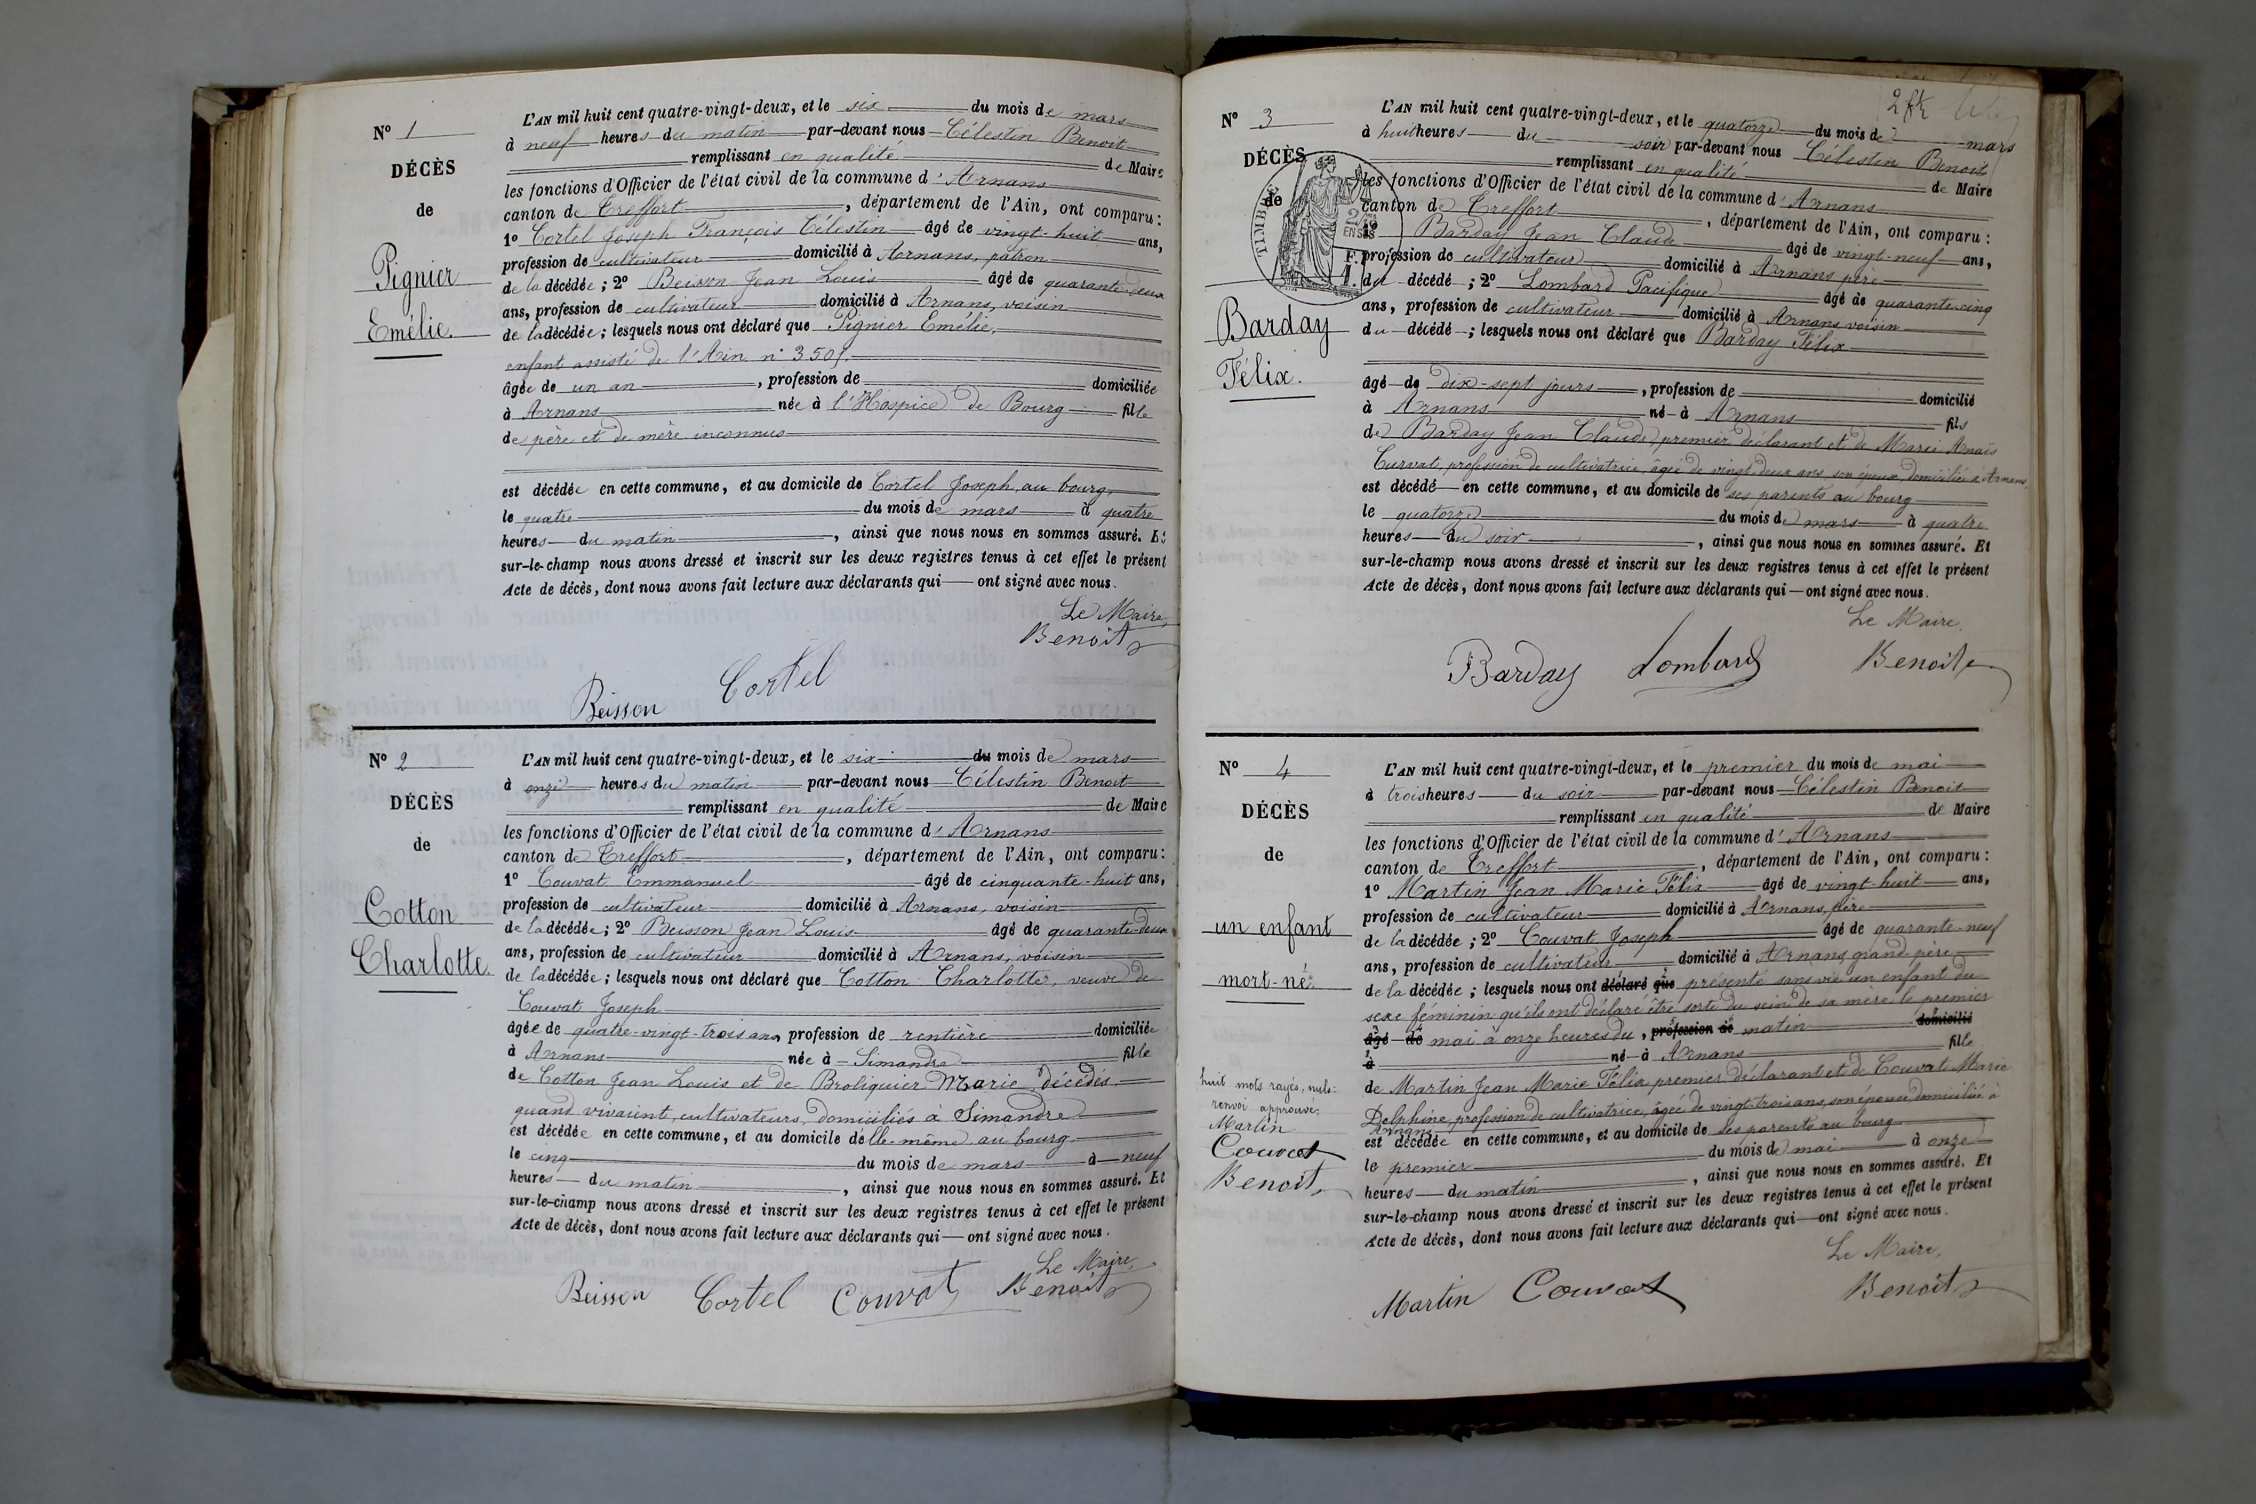 N° 1
DÉCÈS
de
Pignier
Emélie.
L'AN mil huit cent quatre-vingt-deux, et le six du mois de mars
à neuf heures du matin par-devant nous Célestin Benoit
remplissant en qualité de Maire
les fonctions d'Officier de l'état civil de la commune d'Arnans
canton de Treffort, département de l'Ain, ont comparu :
1° Cortel Joseph François Célestin âgé de vingt-huit ans,
profession de cultivateur domicilié à Arnans, patron
de la décédée ; 2° Beisson Jean Louis âgé de quarante-deux
ans, profession de cultivateur domicilié à Arnans, voisin
de la décédée ; lesquels nous ont déclaré que Pignier Emélie,
enfant assisté de l'Ain n° 3501.
âgée de un an, profession de domiciliée
à Arnans née à l'Hospice de Bourg fille
de père et de mère inconnus
est décédée en cette commune, et au domicile de Cortel Joseph, au bourg,
le quatre du mois de mars à quatre
heures du matin, ainsi que nous nous en sommes assuré. Et
sur-le-champ nous avons dressé et inscrit sur les deux registres tenus à cet effet le présent
Acte de décès, dont nous avons fait lecture aux déclarants qui ont signé avec nous.
Le Maire,
Benoit
Cortel
Beisson
N° 2
DÉCÈS
de
Cotton
Charlotte.
L'AN mil huit cent quatre-vingt-deux, et le six du mois de mars
à onze heures du matin par-devant nous Célestin Benoit
remplissant en qualité de Maire
les fonctions d'Officier de l'état civil de la commune d'Arnans
canton de Treffort, département de l'Ain, ont comparu :
1° Couvat Emmanuel âgé de cinquante-huit ans,
profession de cultivateur domicilié à Arnans, voisin
de la décédée ; 2° Beisson Jean Louis âgé de quarante-deux
ans, profession de cultivateur domicilié à Arnans, voisin
de la décédée ; lesquels nous ont déclaré que Cotton Charlotte, veuve de
Couvat Joseph
âgée de quatre-vingt-trois ans, profession de rentière domiciliée
à Arnans née à Simandre fille
de Cotton Jean Louis et de Broliquier Marie décédés
quand vivaient, cultivateurs, domiciliés à Simandre
est décédée en cette commune, et au domicile d'elle-même au bourg
le cinq du mois de mars à neuf
heures du matin, ainsi que nous nous en sommes assuré. Et
sur-le-champ nous avons dressé et inscrit sur les deux registres tenus à cet effet le présent
Acte de décès, dont nous avons fait lecture aux déclarants qui ont signé avec nous.
Le Maire,
Beisson Cortel Couvat Benoit
2
N° 3
DÉCÈS
de
TIMBRE
2/10 EN SUS
Barday
Félix.
L'AN mil huit cent quatre-vingt-deux, et le quatorze du mois de mars
à huit heures du soir par-devant nous Célestin Benoit
remplissant en qualité de Maire
les fonctions d'Officier de l'état civil de la commune d'Arnans
canton de Treffort, département de l'Ain, ont comparu :
Barday Jean Claude âgé de vingt-neuf ans,
profession de cultivateur domicilié à Arnans père
du décédé ; 2° Lombard Pacifique âgé de quarante-cinq
ans, profession de cultivateur domicilié à Arnans voisin
du décédé ; lesquels nous ont déclaré que Barday Félix
âgé de dix-sept jours, profession de domicilié
à Arnans né à Arnans fils
de Barday Jean Claude premier déclarant et de Marie Anaïs
Curvat, profession de cultivatrice, âgée de vingt deux ans, son épouse, domiciliée à Arnans,
est décédé en cette commune, et au domicile de ses parents au bourg
le quatorze du mois de mars à quatre
heures du soir, ainsi que nous nous en sommes assuré. Et
sur-le-champ nous avons dressé et inscrit sur les deux registres tenus à cet effet le présent
Acte de décès, dont nous avons fait lecture aux déclarants qui ont signé avec nous.
Le Maire.
Barday Lombard Benoit
N° 4
DÉCÈS
de
un enfant
mort-né.
huit mots rayés, nuls:
renvoi approuvé:
Martin
Couvat
Benoit
L'AN mil huit cent quatre-vingt-deux, et le premier du mois de mai
à trois heures du soir par-devant nous Célestin Benoit
remplissant en qualité de Maire
les fonctions d'Officier de l'état civil de la commune d'Arnans
canton de Treffort, département de l'Ain, ont comparu :
1° Martin Jean Marie Félix âgé de vingt-huit ans,
profession de cultivateur domicilié à Arnans, père
de la décédée ; 2° Couvat Joseph âgé de quarante-neuf
ans, profession de cultivateur domicilié à Arnans, grand père
de la décédée ; lesquels nous ont déclaré que présenté sans vie un enfant du
sexe féminin qu'ils ont déclaré être sorti du sein de sa mère le premier
âgé de mai à onze heures du, profession de matin domicilié
à né à Arnans fille
de Martin Jean Marie Félix premier déclarant et de Couvat Marie
Delphine, profession de cultivatrice, âgée de vingt-trois ans, son épouse, domiciliée à
Arnans
est décédée en cette commune, et au domicile de ses parents au bourg
le premier du mois de mai à onze
heures du matin, ainsi que nous nous en sommes assuré. Et
sur-le-champ nous avons dressé et inscrit sur les deux registres tenus à cet effet le présent
Acte de décès, dont nous avons fait lecture aux déclarants qui ont signé avec nous.
Le Maire,
Martin Couvat Benoit